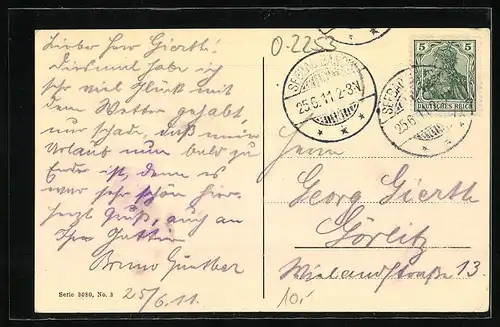 Lieber Herr Gierth!
Diesmal habe ich
sehr viel Glück mit
dem Wetter gehabt,
nur schade, daß mein
Urlaub nun bald zu
Ende ist, denn es
war sehr schön hier.
Herzl. Gruß, auch an
Ihre Gattin
Bruno Günther
25/6.11.
Serie 3080, No. 3
O-2253
25.6.11.2-3N
5 5
DEUTSCHES REICH
25.6.11
Herrn
Georg Gierth
Görlitz
Wielandstraße 13.
10.-